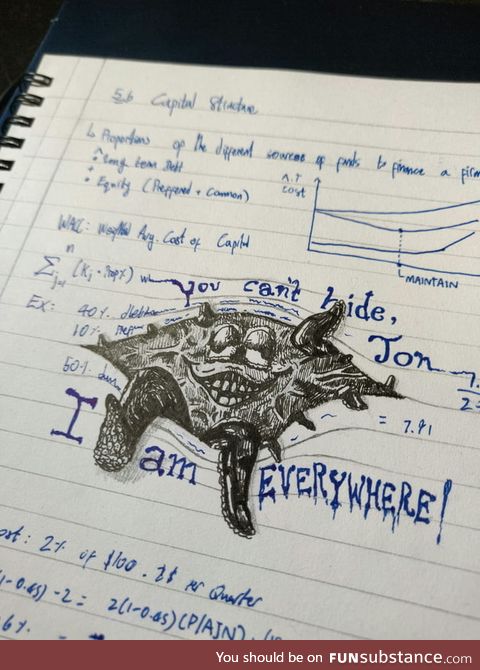 5.6 Capital Structure
↳ Proportions of the different sources of funds to finance a firm
• Long term Debt
+
• Equity (Preffered + Common)
A.T
cost
MAINTAIN
WACC: Weighted Avg. Cost of Capital
n
∑ (Kj · Propx)
j=1
you can't hide,
Ex: 40%
10%
Jon
50%
7.
2
I am EVERYWHERE!
= 7.91
ost: 2% of $100 = $ per Quarter
(1-0.45) - 2 = 2(1-0.45)(P/A,N)
6%
You should be on FUNsubstance.com